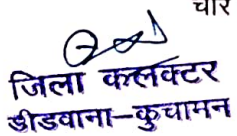 चार
जिला कलक्टर
डीडवाना–कुचामन